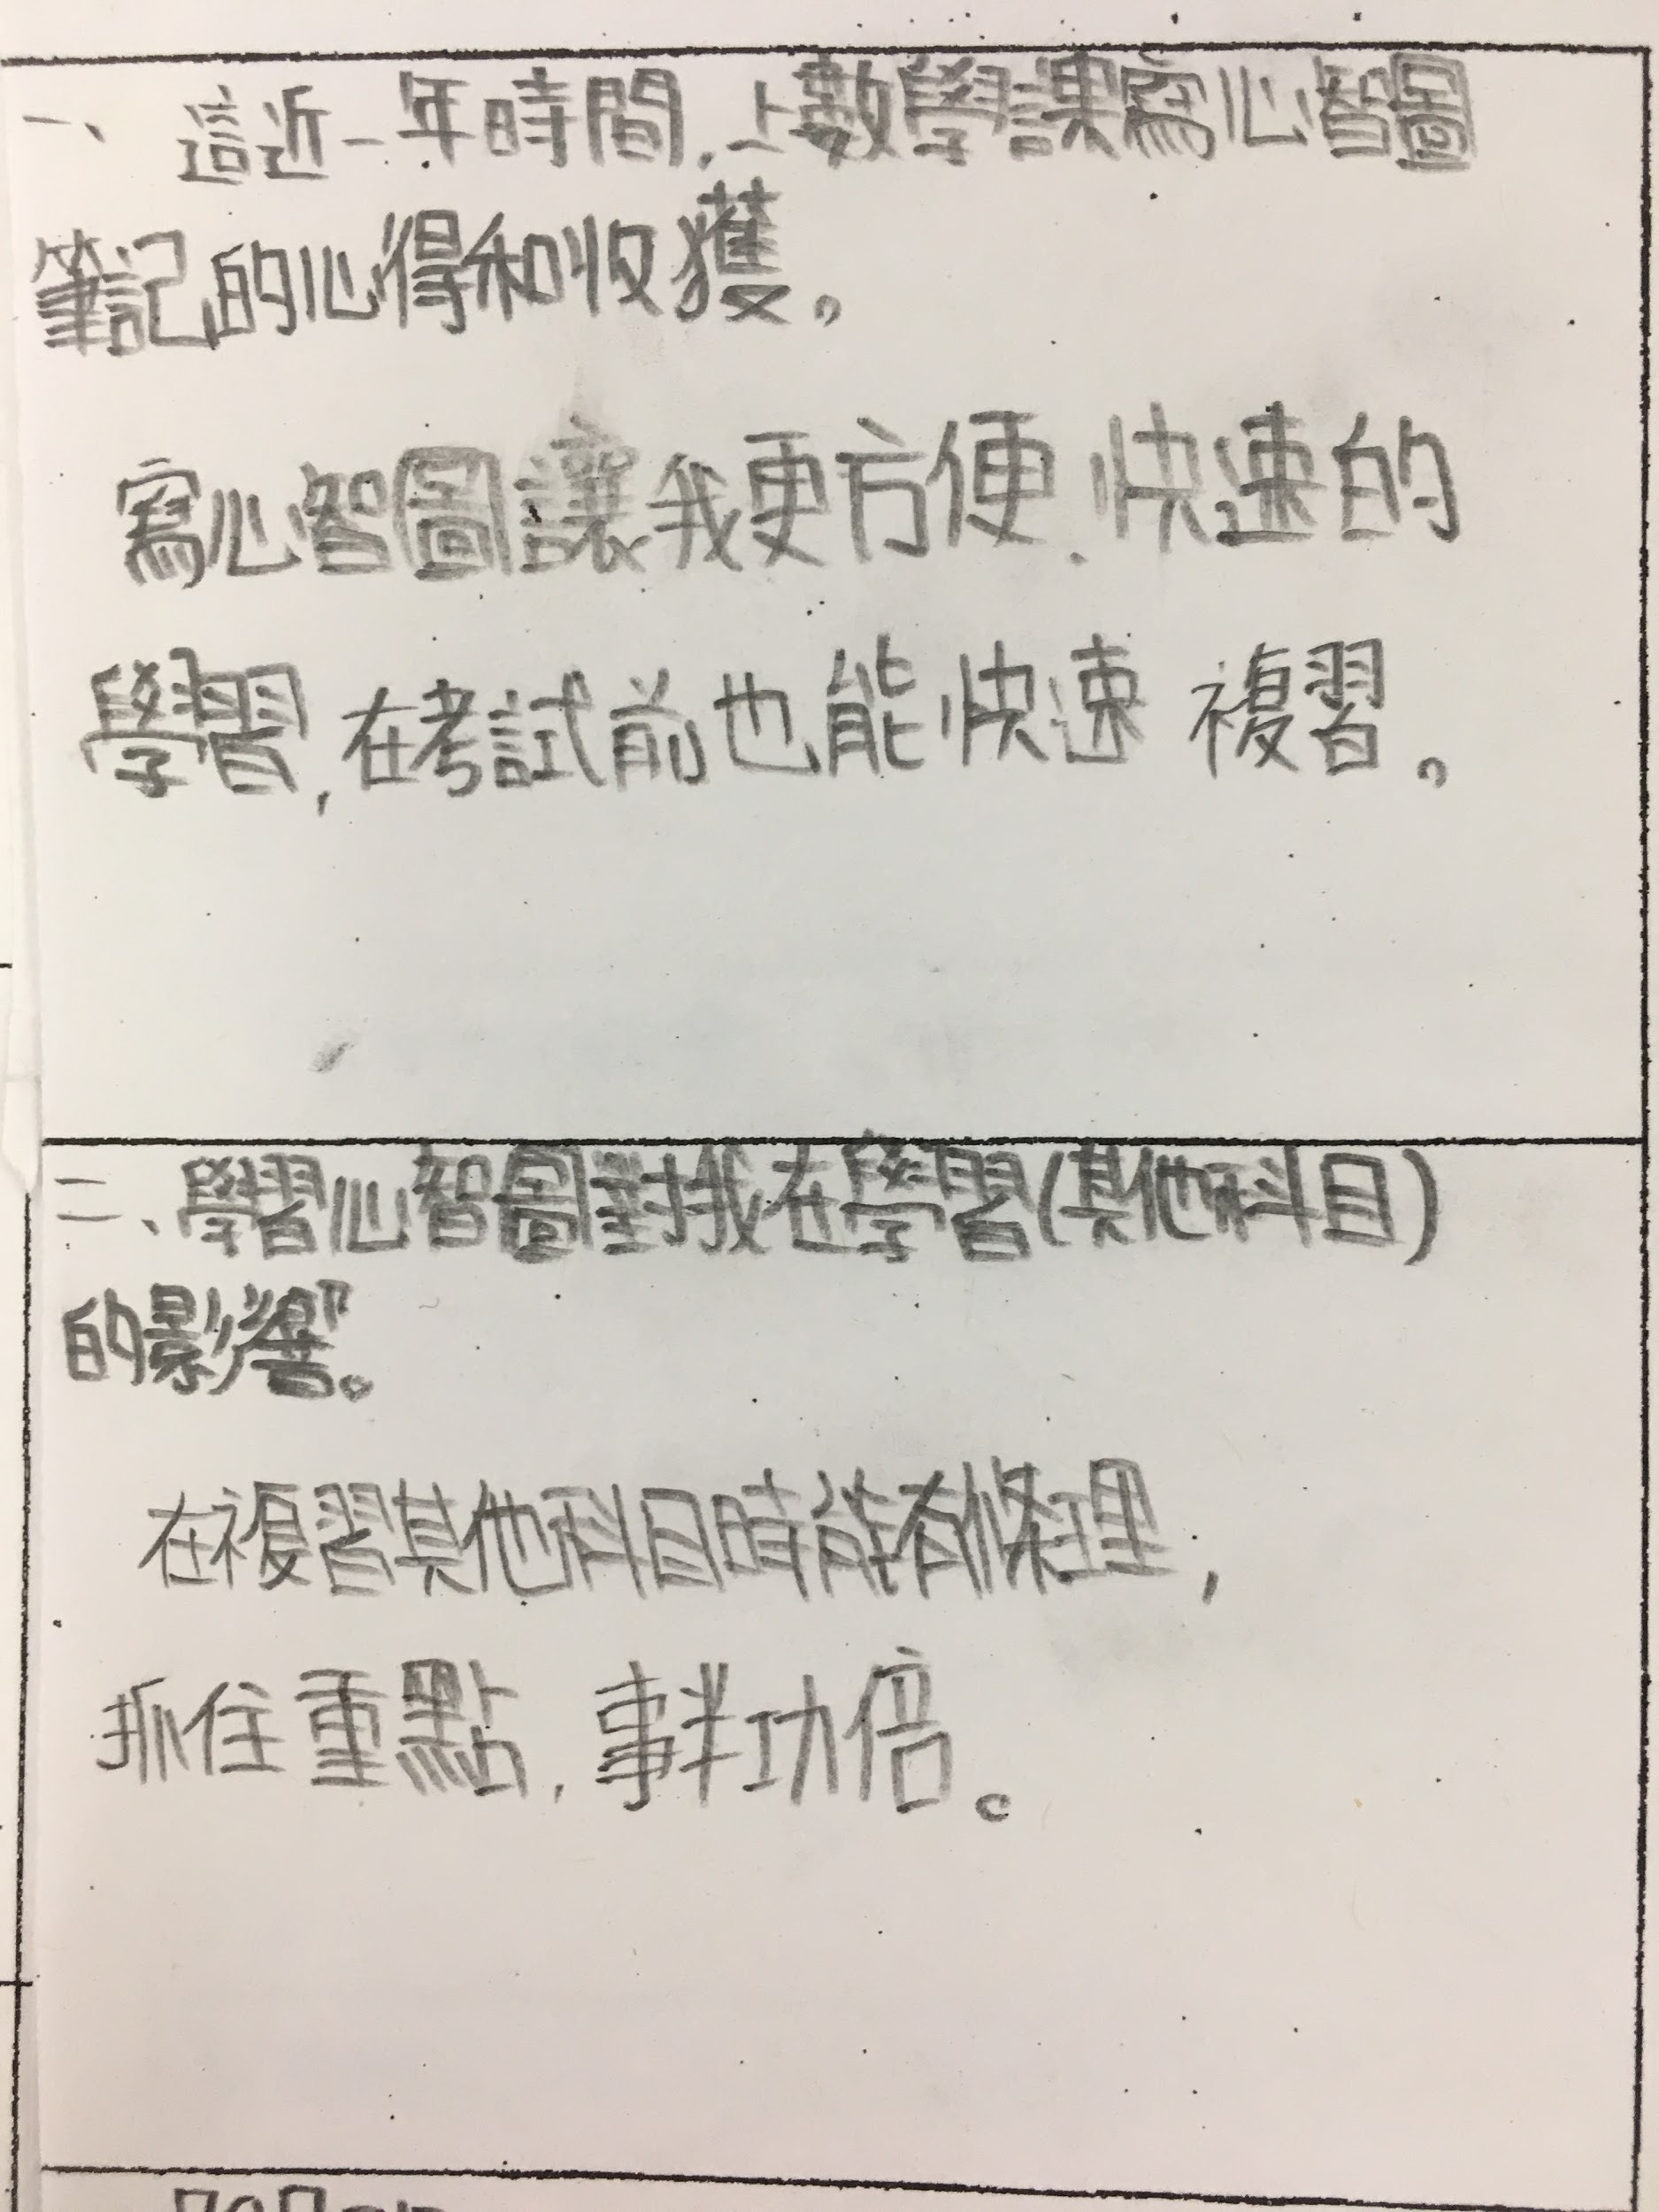 一、這近一年時間,上數學課寫心智圖
筆記的心得和收獲。
寫心智圖讓我更方便、快速的
學習,在考試前也能快速複習。
二、學習心智圖對我在學習(其他科目)
的影響。
在複習其他科目時能有條理,
抓住重點,事半功倍。